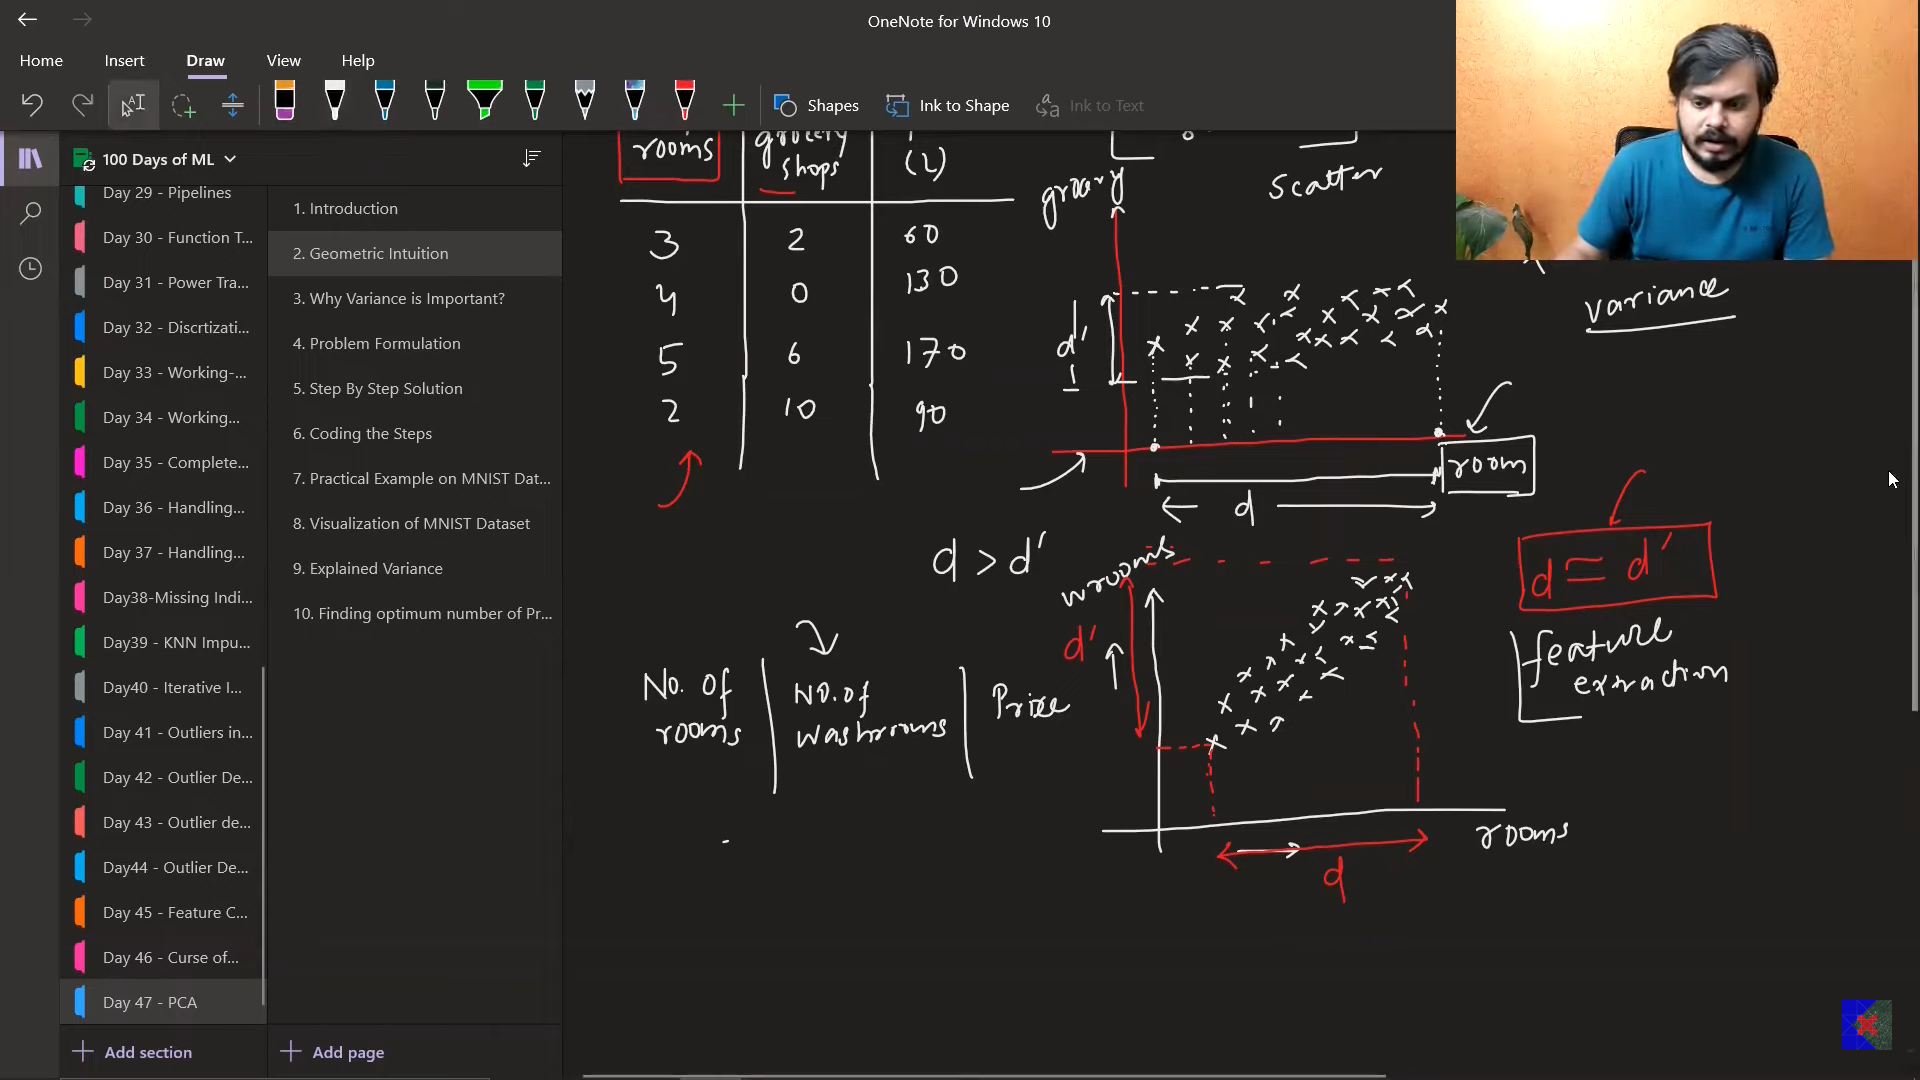 OneNote for Windows 10
Home
Insert
Draw
View
Help
Shapes
Ink to Shape
Ink to Text
100 Days of ML
Day 29 - Pipelines
Day 30 - Function T...
Day 31 - Power Tra...
Day 32 - Discrtizati...
Day 33 - Working-...
Day 34 - Working...
Day 35 - Complete...
Day 36 - Handling...
Day 37 - Handling...
Day38-Missing Indi...
Day39 - KNN Impu...
Day40 - Iterative I...
Day 41 - Outliers in...
Day 42 - Outlier De...
Day 43 - Outlier de...
Day44 - Outlier De...
Day 45 - Feature C...
Day 46 - Curse of...
Day 47 - PCA
Add section
1. Introduction
2. Geometric Intuition
3. Why Variance is Important?
4. Problem Formulation
5. Step By Step Solution
6. Coding the Steps
7. Practical Example on MNIST Dat...
8. Visualization of MNIST Dataset
9. Explained Variance
10. Finding optimum number of Pr...
Add page
rooms
grocery
shops
(L)
3 2 60
4 0 130
5 6 170
2 10 90
grocery
scatter
variance
d'
room
d
d > d'
No. of
rooms
No. of
washrooms
Price
wrooms
d'
rooms
d
d = d'
feature
extraction